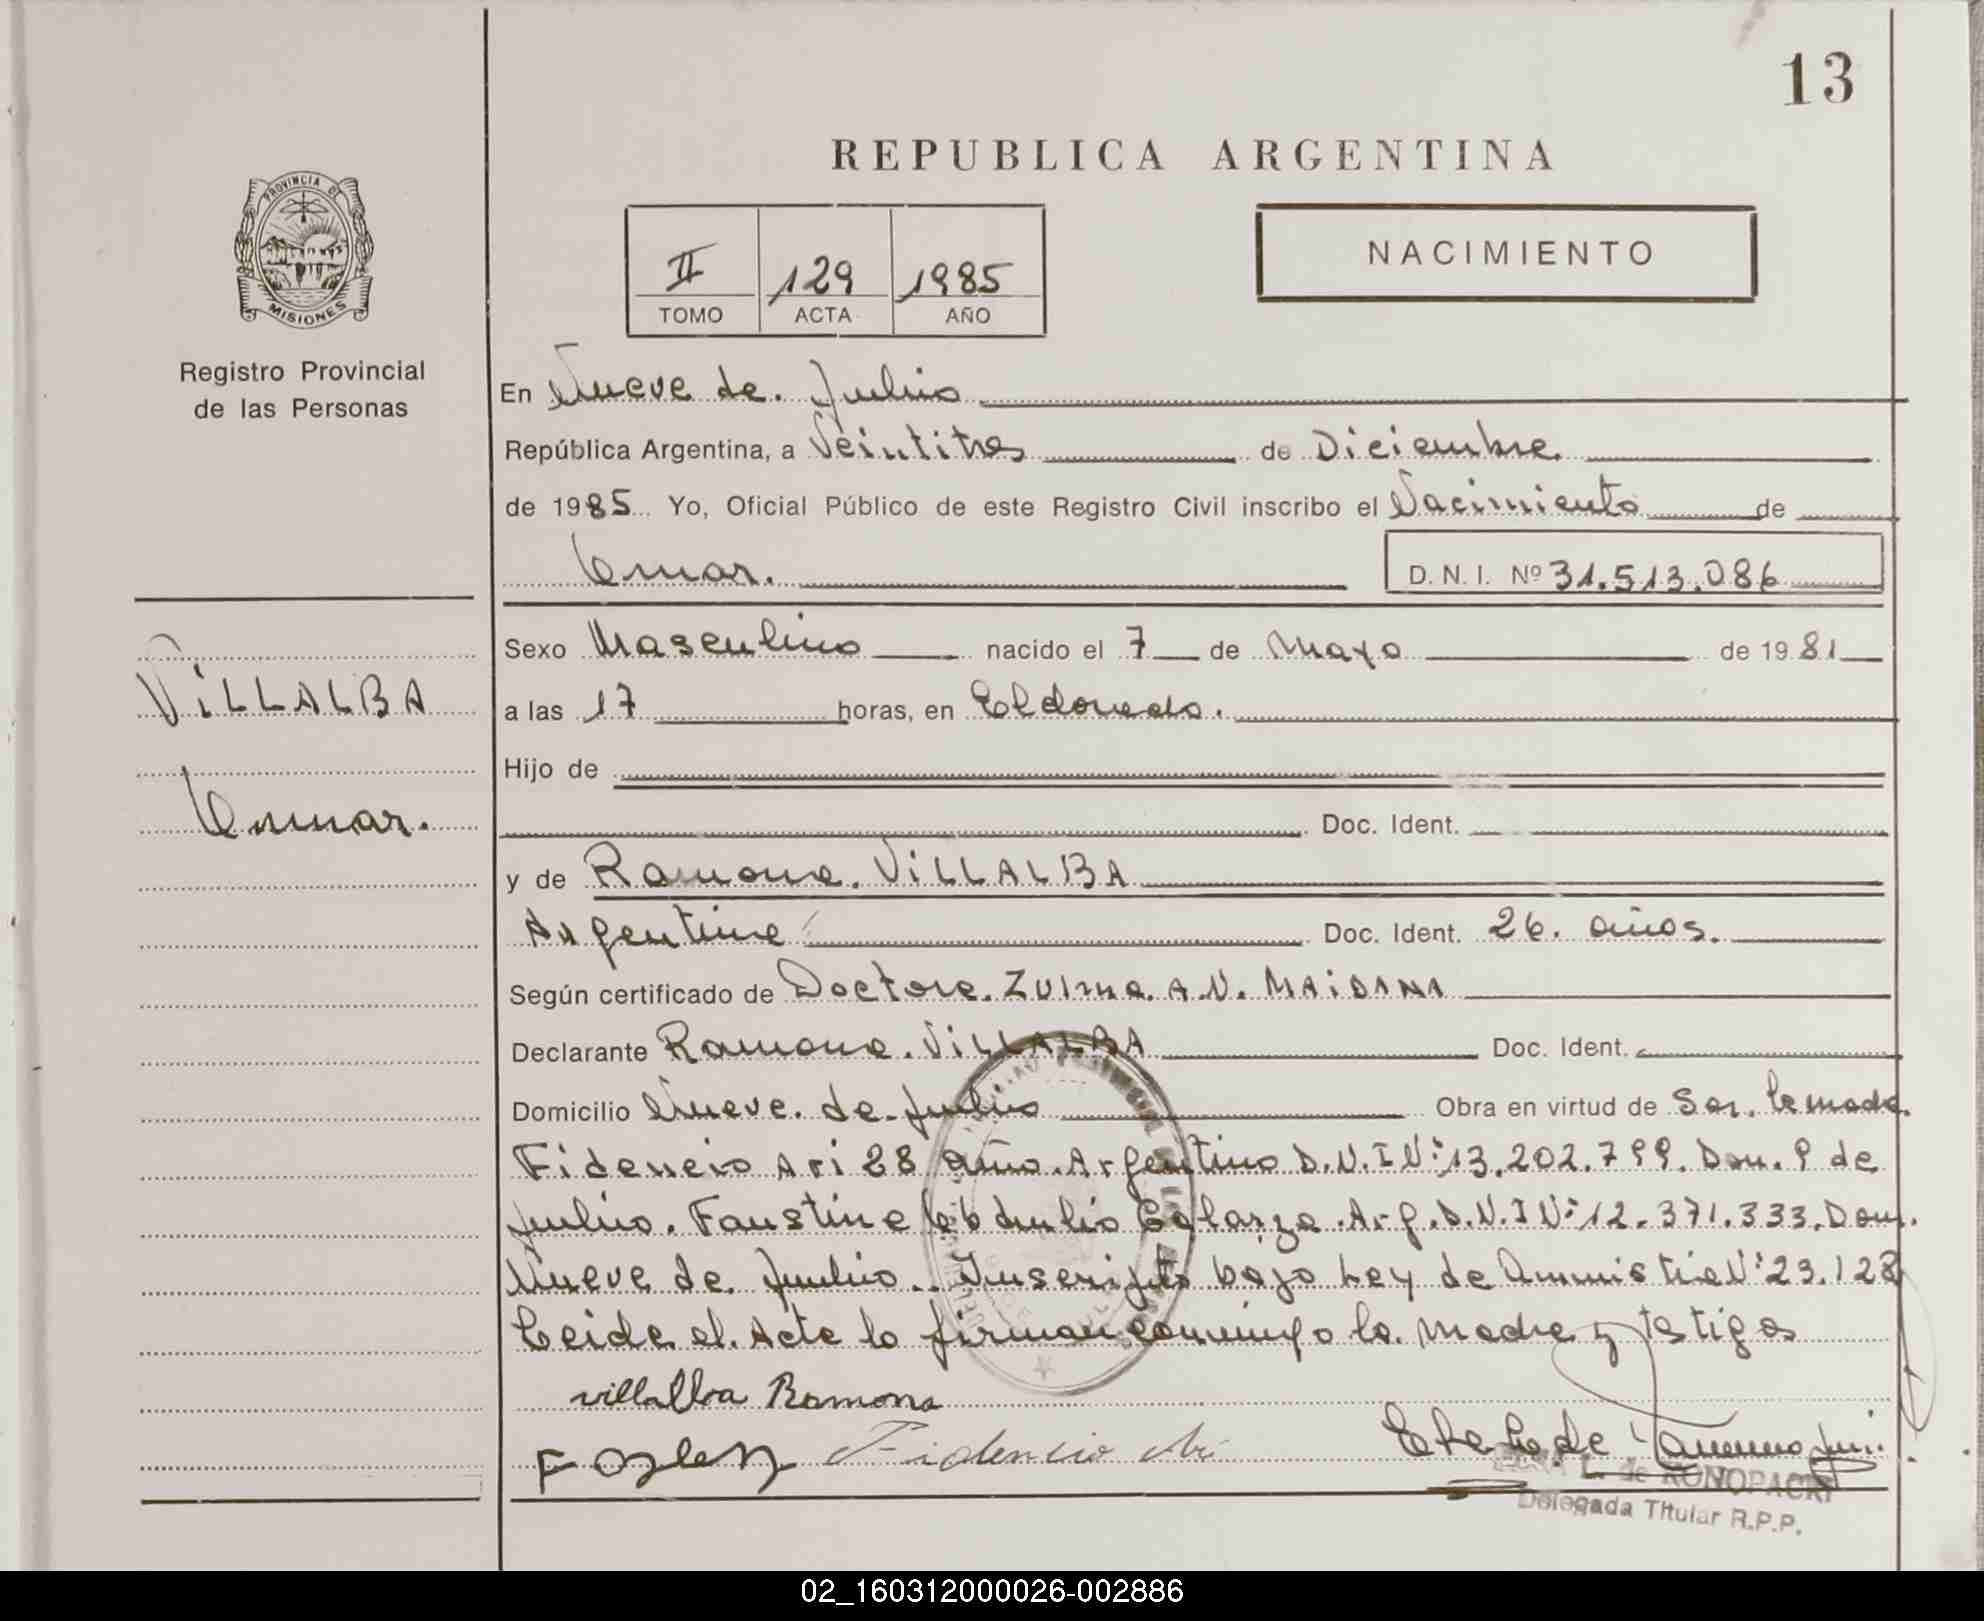 13
REPUBLICA ARGENTINA
PROVINCIA DE
MISIONES
Registro Provincial
de las Personas
II 129 1985
TOMO ACTA AÑO
NACIMIENTO
En Nueve de Julio
República Argentina, a Veintitres de Diciembre
de 1985 Yo, Oficial Público de este Registro Civil inscribo el Nacimiento de
Omar. D. N. I. Nº 31.513.086
VILLALBA
Omar.
Sexo Masculino nacido el 7 de Mayo de 1981
a las 17 horas, en Eldorado.
Hijo de
Doc. Ident.
y de Ramona. VILLALBA
Argentina Doc. Ident. 26. años.
Según certificado de Doctora. Zulma. A.N. MAIDANA
Declarante Ramona. VILLALBA Doc. Ident.
Domicilio Nueve. de Julio Obra en virtud de Ser. la madre.
Fidencio Ari 28 año. Argentino D.N.I Nº 13.202.799. Dom. 9 de
Julio. Faustina Arg. D.N.I Nº 12.371.333. Dom.
Nueve de Julio.. Inscripto bajo Ley de Amnistia Nº 23.128
Leida el Acta la firman conmigo la Madre y testigos
villalba Ramona
Fidencio Ari
L. de KONOPACKI
Delegada Titular R.P.P.
02_160312000026-002886